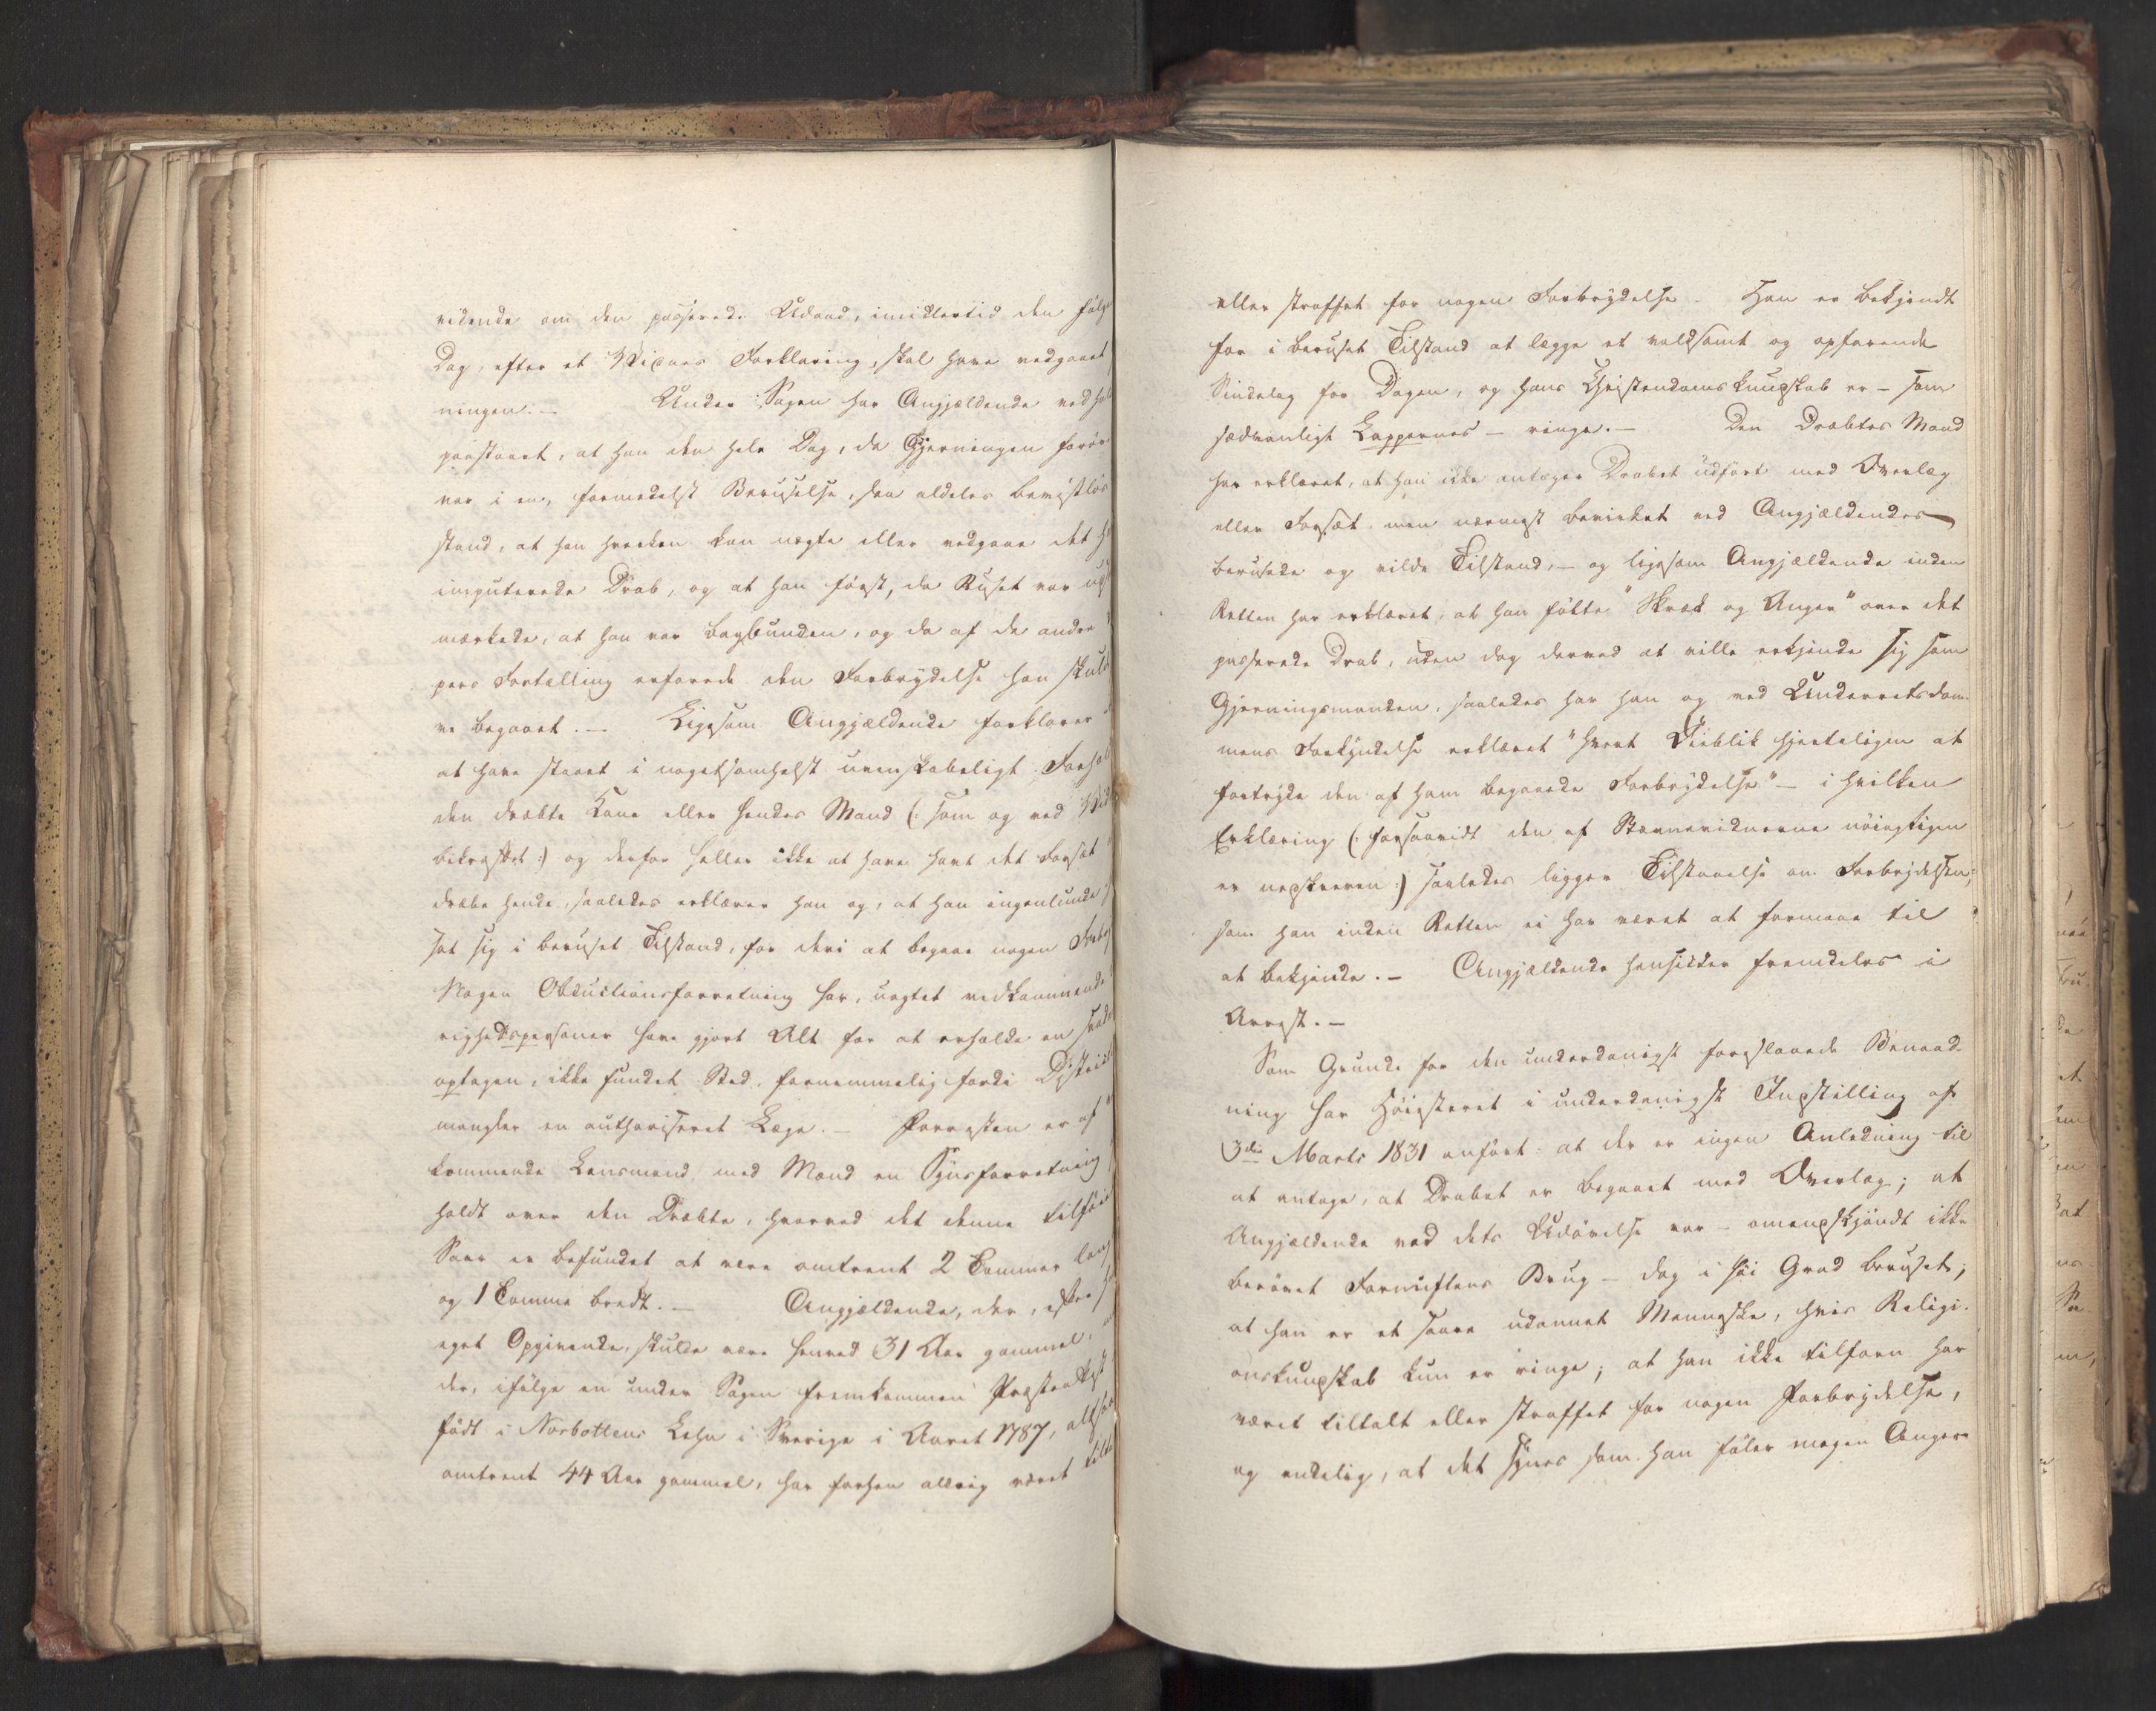 vidende om den passerede Udaad, imidlertid den følge
Dag, efter et Vidnes Forklaring, skal have vedgaaet
ningen. — Under Sagen har Angjældende vedhol
paastaaet, at han den hele Dag, da Gjerningen forøv
var i en, formedelst Beruselse, saa aldeles bevistløs
stand, at han hverken kan negte eller vedgaae det h
imputerede Drab, og at han først, da Ruset var
mærkede, at han var bagbunden, og da af de andre
pers Fortælling erfarede den Forbrydelse han skuld
ve begaaet. — Ligesom Angjældende forklarer
at have staaet i nogetsomhelst uvenskabeligt Forhol
den dræbte Kone eller hendes Mand (: som og ved Vid
bekræftet :) og derfor heller ikke at have havt det Forsæt
dræbe hende, saaledes erklærer han og, at han ingenlunde
sat sig i beruset Tilstand, for deri at begaae nogen Forbr
Nogen Obductionsforretning har, uagtet vedkommende
righedspersoner have gjort Alt for at erholde en saada
optagen, ikke fundet Sted, fornemmelig fordi Distric
mangler en authoriseret Læge. — Forresten er af
kommende Lensmand med Mænd en Synsforretning
holdt over den Dræbte, hvorved det denne tilføi
Saar er befundet at være omtrent 2 Tommer lang
og 1 Tomme bredt. — Angjældende, der, efter
eget Opgivende, skulde være henved 31 Aar gammel,
der, ifølge en under Sagen fremkommen Præsteattest
født i Norbottens Lehn i Sverige i Aaret 1787, altsaa
omtrent 44 Aar gammel, har forhen aldrig været tilta
eller straffet for nogen Forbrydelse. Han er bekjendt
for i beruset Tilstand at lægge et voldsomt og opfarende
Sindelag for Dagen, og hans Christendoms Kundskab er — som
sædvanligt Lappernes — ringe. — Den Dræbtes Mand
har erklæret, at han ikke antager Drabet udført med Overlæg
eller Forsæt, men nærmest bevirket ved Angjældendes
berusede og vilde Tilstand, — og ligesom Angjældende inden
Retten har erklæret, at han følte "Skræk og Anger" over det
passerede Drab, uden dog derved at ville erkjende sig som
Gjerningsmanden, saaledes har han og ved Underretsdom-
mens Forkyndelse erklæret "hvert Øieblik hjerteligen at
fortryde den af ham begaaede Forbrydelse" — i hvilken
Erklæring (: forsaavidt den af Stevnevidnerne nøiagtigen
er nedskreven :) saaledes ligger Tilstaaelse om Forbrydelsen,
som han inden Retten ei har været at formaae til
at bekjende. — Angjældende hensidder fremdeles i
Arrest. —
Som Grunde for den underdanigst foreslaaede Benaad-
ning har Høiesteret i underdanigst Indstilling af
3die Marts 1831 anført: at der er ingen Anledning til
at antage, at Drabet er begaaet med Overlæg; at
Angjældende ved dets Udøvelse var — omendskjøndt ikke
berøvet Fornuftens Brug — dog i høi Grad beruset;
at han er et saare udannet Menneske, hvis Religi-
onskundskab kun er ringe; at han ikke tilforn har
været tiltalt eller straffet for nogen Forbrydelse,
og endelig, at det synes som han føler megen Anger